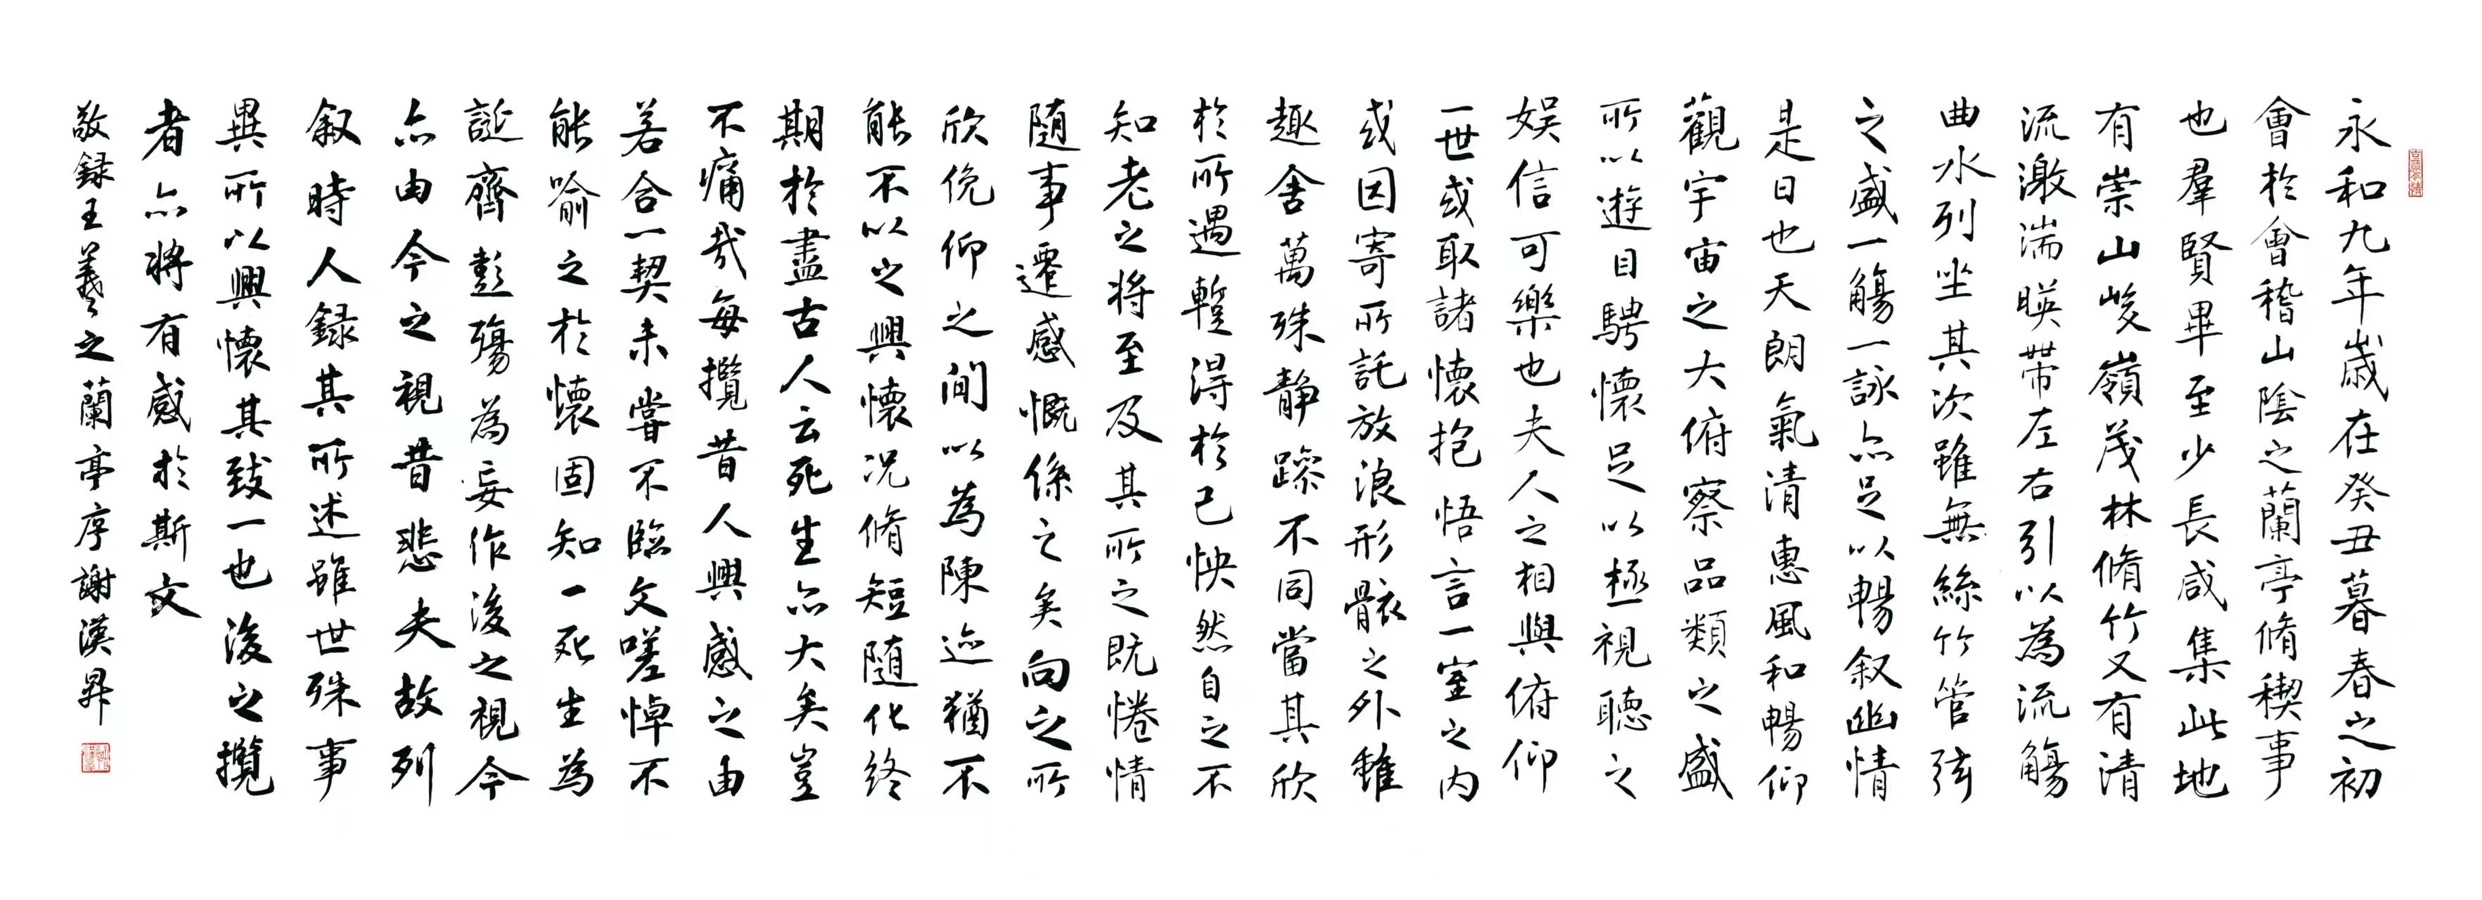 永和九年歲在癸丑暮春之初
會於會稽山陰之蘭亭脩稧事
也羣賢畢至少長咸集此地
有崇山峻嶺茂林脩竹又有清
流激湍暎帶左右引以為流觴
曲水列坐其次雖無絲竹管弦
之盛一觴一詠亦足以暢叙幽情
是日也天朗氣清惠風和暢仰
觀宇宙之大俯察品類之盛
所以遊目騁懷足以極視聽之
娛信可樂也夫人之相與俯仰
一世或取諸懷抱悟言一室之內
或因寄所託放浪形骸之外雖
趣舍萬殊靜躁不同當其欣
於所遇暫得於己怏然自之不
知老之將至及其所之既惓情
隨事遷感慨係之矣向之所
欣俛仰之間以為陳迹猶不
能不以之興懷況脩短隨化終
期於盡古人云死生亦大矣豈
不痛哉每攬昔人興感之由
若合一契未嘗不臨文嗟悼不
能喻之於懷固知一死生為
誕齊彭殤為妄作後之視今
亦由今之視昔悲夫故列
叙時人録其所述雖世殊事
異所以興懷其致一也後之攬
者亦將有感於斯文
敬録王羲之蘭亭序謝漢昇